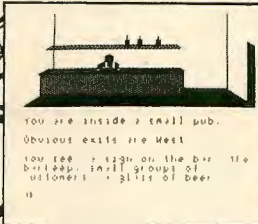 You are inside a small pub.
Obvious exits are West
You see a sign on the bar the
barkeep, small groups of
customers a glass of beer